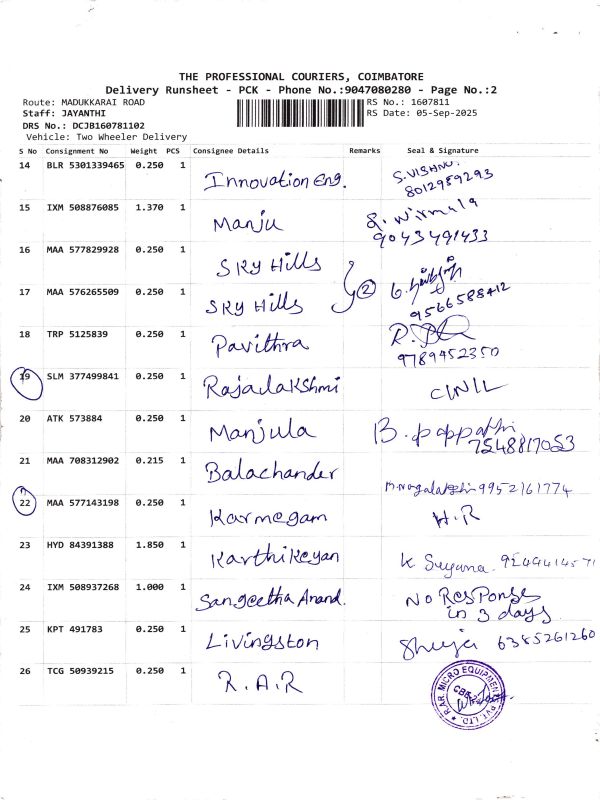 THE PROFESSIONAL COURIERS, COIMBATORE
Delivery Runsheet - PCK - Phone No.:9047080280 - Page No.:2
Route: MADUKKARAI ROAD RS No.: 1607811
Staff: JAYANTHI RS Date: 05-Sep-2025
DRS No.: DCJB160781102
Vehicle: Two Wheeler Delivery
S No Consignment No Weight PCS Consignee Details Remarks Seal & Signature
14 BLR 5301339465 0.250 1 Innovation Eng. S.VISHNU.
8012959293
15 IXM 508876085 1.370 1 Manju
9043491433
16 MAA 577829928 0.250 1 SKY Hills
2
17 MAA 576265509 0.250 1 SKY Hills
9566588412
18 TRP 5125839 0.250 1 Pavithra
9789452350
19 SLM 377499841 0.250 1 Rajalakshmi
20 ATK 573884 0.250 1 Manjula B. pappathi
7548817053
21 MAA 708312902 0.215 1 Balachander 9952161774
22 MAA 577143198 0.250 1 Karmegam H.R
23 HYD 84391388 1.850 1 Karthikeyan K Suguna.
24 IXM 508937268 1.000 1 Sangeetha Anand. NO Response
in 3 days
25 KPT 491783 0.250 1 Livingston 6385261260
26 TCG 50939215 0.250 1 R.A.R
R.AR. MICRO EQUIPMENT PVT. LTD.